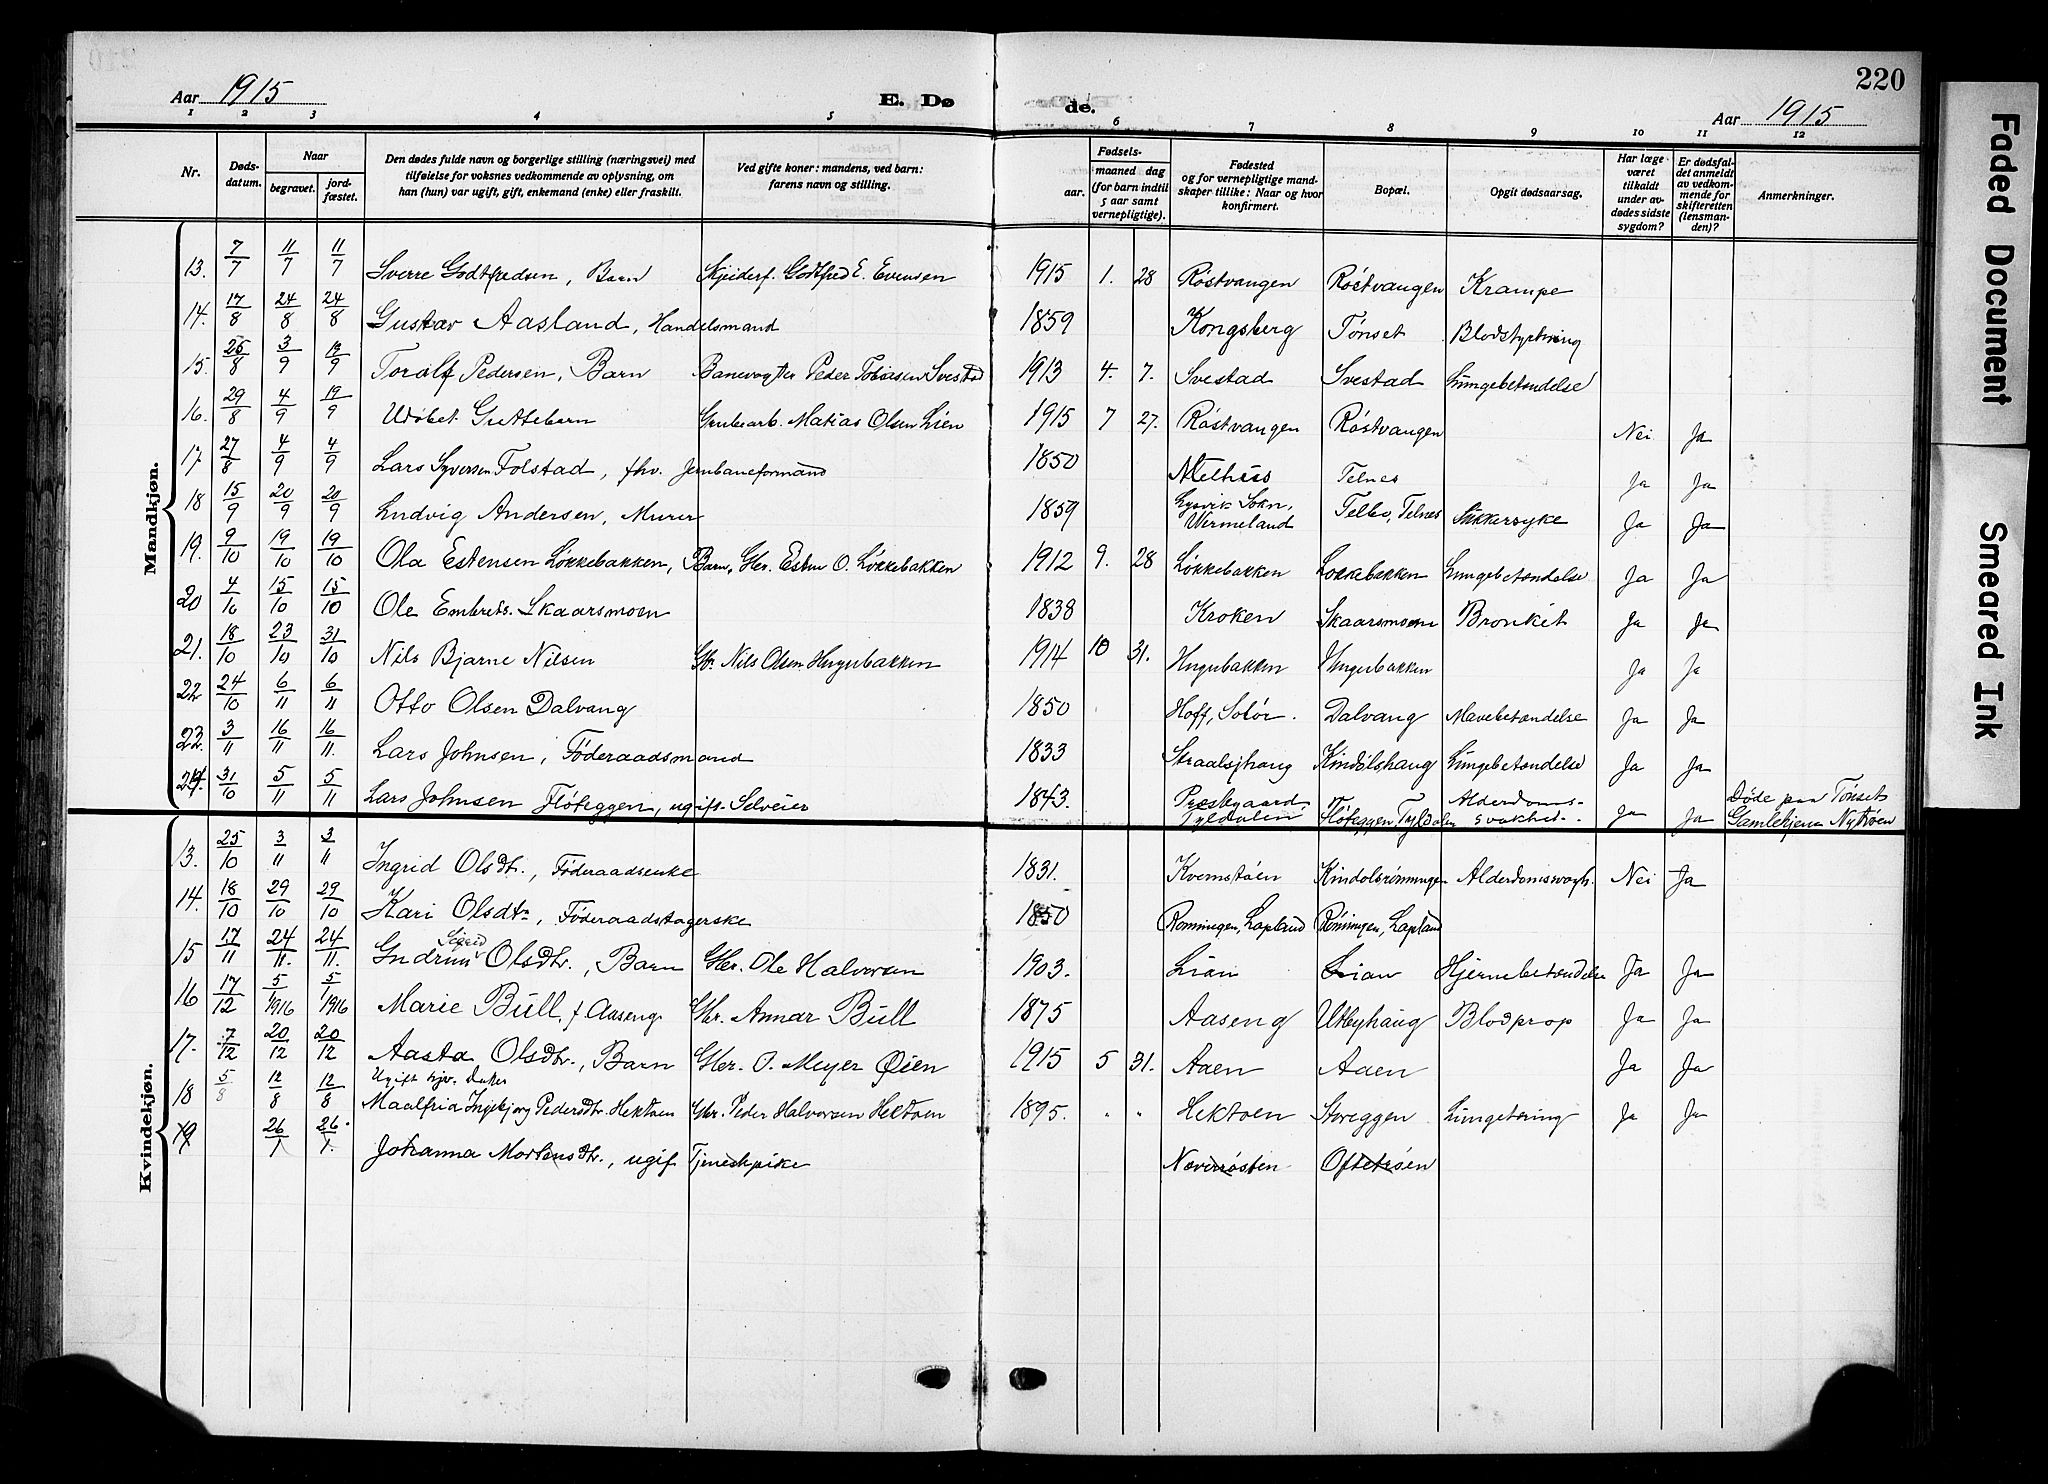 220
Aar 1915 E. Dø de. Aar 1915
1 2 3 4 5 6 7 8 9 10 11 12
Nr. Døds-datum. Naar begravet. jord-fæstet. Den dødes fulde navn og borgerlige stilling (næringsvei) med tilføielse for voksnes vedkommende av oplysning, om han (hun) var ugift, gift, enkemand (enke) eller fraskilt. Ved gifte koner: mandens, ved barn: farens navn og stilling. Fødsels- aar. maaned dag (for barn indtil 5 aar samt vernepligtige). Fødested og for vernepligtige mandskaper tillike: Naar og hvor konfirmert. Bopæl. Opgit dødsaarsag. Har læge været tilkaldt under avdødes sidste sygdom? Er dødsfaldet anmeldt av vedkommende for skifteretten (lensmanden)? Anmerkninger.
Mandkjøn.
13. 7/7 11/7 11/7 Sverre Godtfredsen, Barn Skjeiderf. Godtfred E. Evensen 1915 1. 28 Røstvangen Røstvangen Krampe
14. 17/8 24/8 24/8 Gustav Aasland, Handelsmand 1859 Kongsberg Tønset Blodstyrtning
15. 25/8 3/9 /9 Toralf Pedersen, Barn Banevogter Peder Tobiasen Svestad 1913 4. 7. Svestad Svestad Lungebetændelse
16. 29/8 4/9 19/9 Udøbt Guttebarn Grubearb. Matias Olsen Lien 1915 7 27. Røstvangen Røstvangen Nei Ja
17. 27/8 4/9 4/9 Lars Syversen Tolstad, fhv. Jernbaneformand 1850 Melhus Telnes Ja Ja
18 15/9 20/9 20/9 Ludvig Andersen, Murer 1859 Lysvik Sokn, Wermeland Telbo, Telnes Sukkersyke Ja Ja
19. 9/10 19/10 19/10 Ola Estensen Løkkebakken, Barn, Gbr. Esten O. Løkkebakken 1912 9. 28 Løkkebakken Løkkebakken Lungebetændelse Ja Ja
20 4/10 15/10 15/10 Ole Embrets. Skaarsmoen 1838 Kroken Skaarsmoen Bronkit Ja Ja
21. 18/10 23/10 31/10 Nils Bjarne Nilsen Gbr. Nils Olsen Hugubakken 1914 10 31. Hugubakken Hugubakken Ja Ja
22 24/10 6/11 6/11 Otto Olsen Dalvang 1850 Hoff, Solør. Dalvang Mavebetændelse Ja Ja
23. 3/11 16/11 16/11. Lars Johnsen, Føderaadsmand 1833 Straalsjhaug Kindølshaug Lungebetændelse Ja Ja
24. 31/10 5/11 5/11 Lars Johnsen Fløteggen, ugift Selveier 1843. Prestgaard, Tyldalen Fløteggen, Tyldalen Alderdoms-svakhet. Ja Ja Døde paa Tønset Gamlehjem Nytrøen
Kvindekjøn.
13. 25/10 3/11 3/11 Ingrid Olsdtr., Føderaadsenke 1831. Kvemstøen Kindølsrønningen Alderdomssvagh. Nei Ja
14. 18/10 29/10 29/10 Kari Olsdtr, Føderaadstagerske 1850 Rønningen, Lapland Rønningen, Lapland
15 17/11 24/11. 24/11. Gudrun Sigrid Olsdtr., Barn Gbr. Ole Halvorsen 1903. Lian Lian Hjernebetændelse Ja Ja
16 17/12 5/1 1916 5/1 1916 Marie Bull, f. Aaseng Gbr. Annar Bull 1875 Aaseng Utbyhaug Blodprop Ja Ja
17. 7/12 20/12 20/12 Aasta Olsdtr., Barn Gbr. O. Meyer Øien 1915 5 31. Aaen Aaen Ja Ja
18 5/8 12/8 12/8 Ugift hjv. Datter Maalfrid Ingebjørg Pedersdtr. Hektoen Gbr. Peder Halvorsen Hektoen 1895. " " Hektoen Storeggen Lungetæring Ja Ja
19 26/1 26/1. Johanna Mortensdtr., ugift Tjenestpike Neverøsten Oftetrøen
Faded Document
Smeared Ink